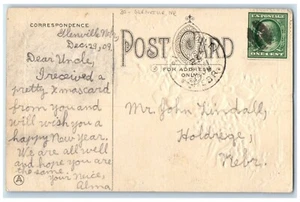 CORRESPONDENCE
Glenville, Neb
Dec 29, 09
Dear Uncle,
I received a
pretty Xmas card
from you and
will wish you a
happy New Year.
We are all well
and hope you are
the same.
Your niece,
Alma
POST CARD
FOR ADDRESS
ONLY
Mr. John Lindall,
Holdrege,
Nebr.
ONE CENT
A